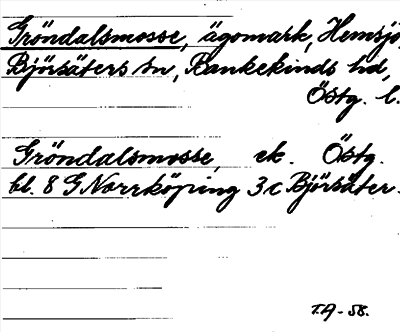 Gröndalsmosse, ägomark, Hemsjö,
Björsäters sn, Bankekinds hd,
Östg. l.
Gröndalsmosse, ek. Östg.
bl. 8 G Norrköping 3 c Björsäter.
T.A - 58.